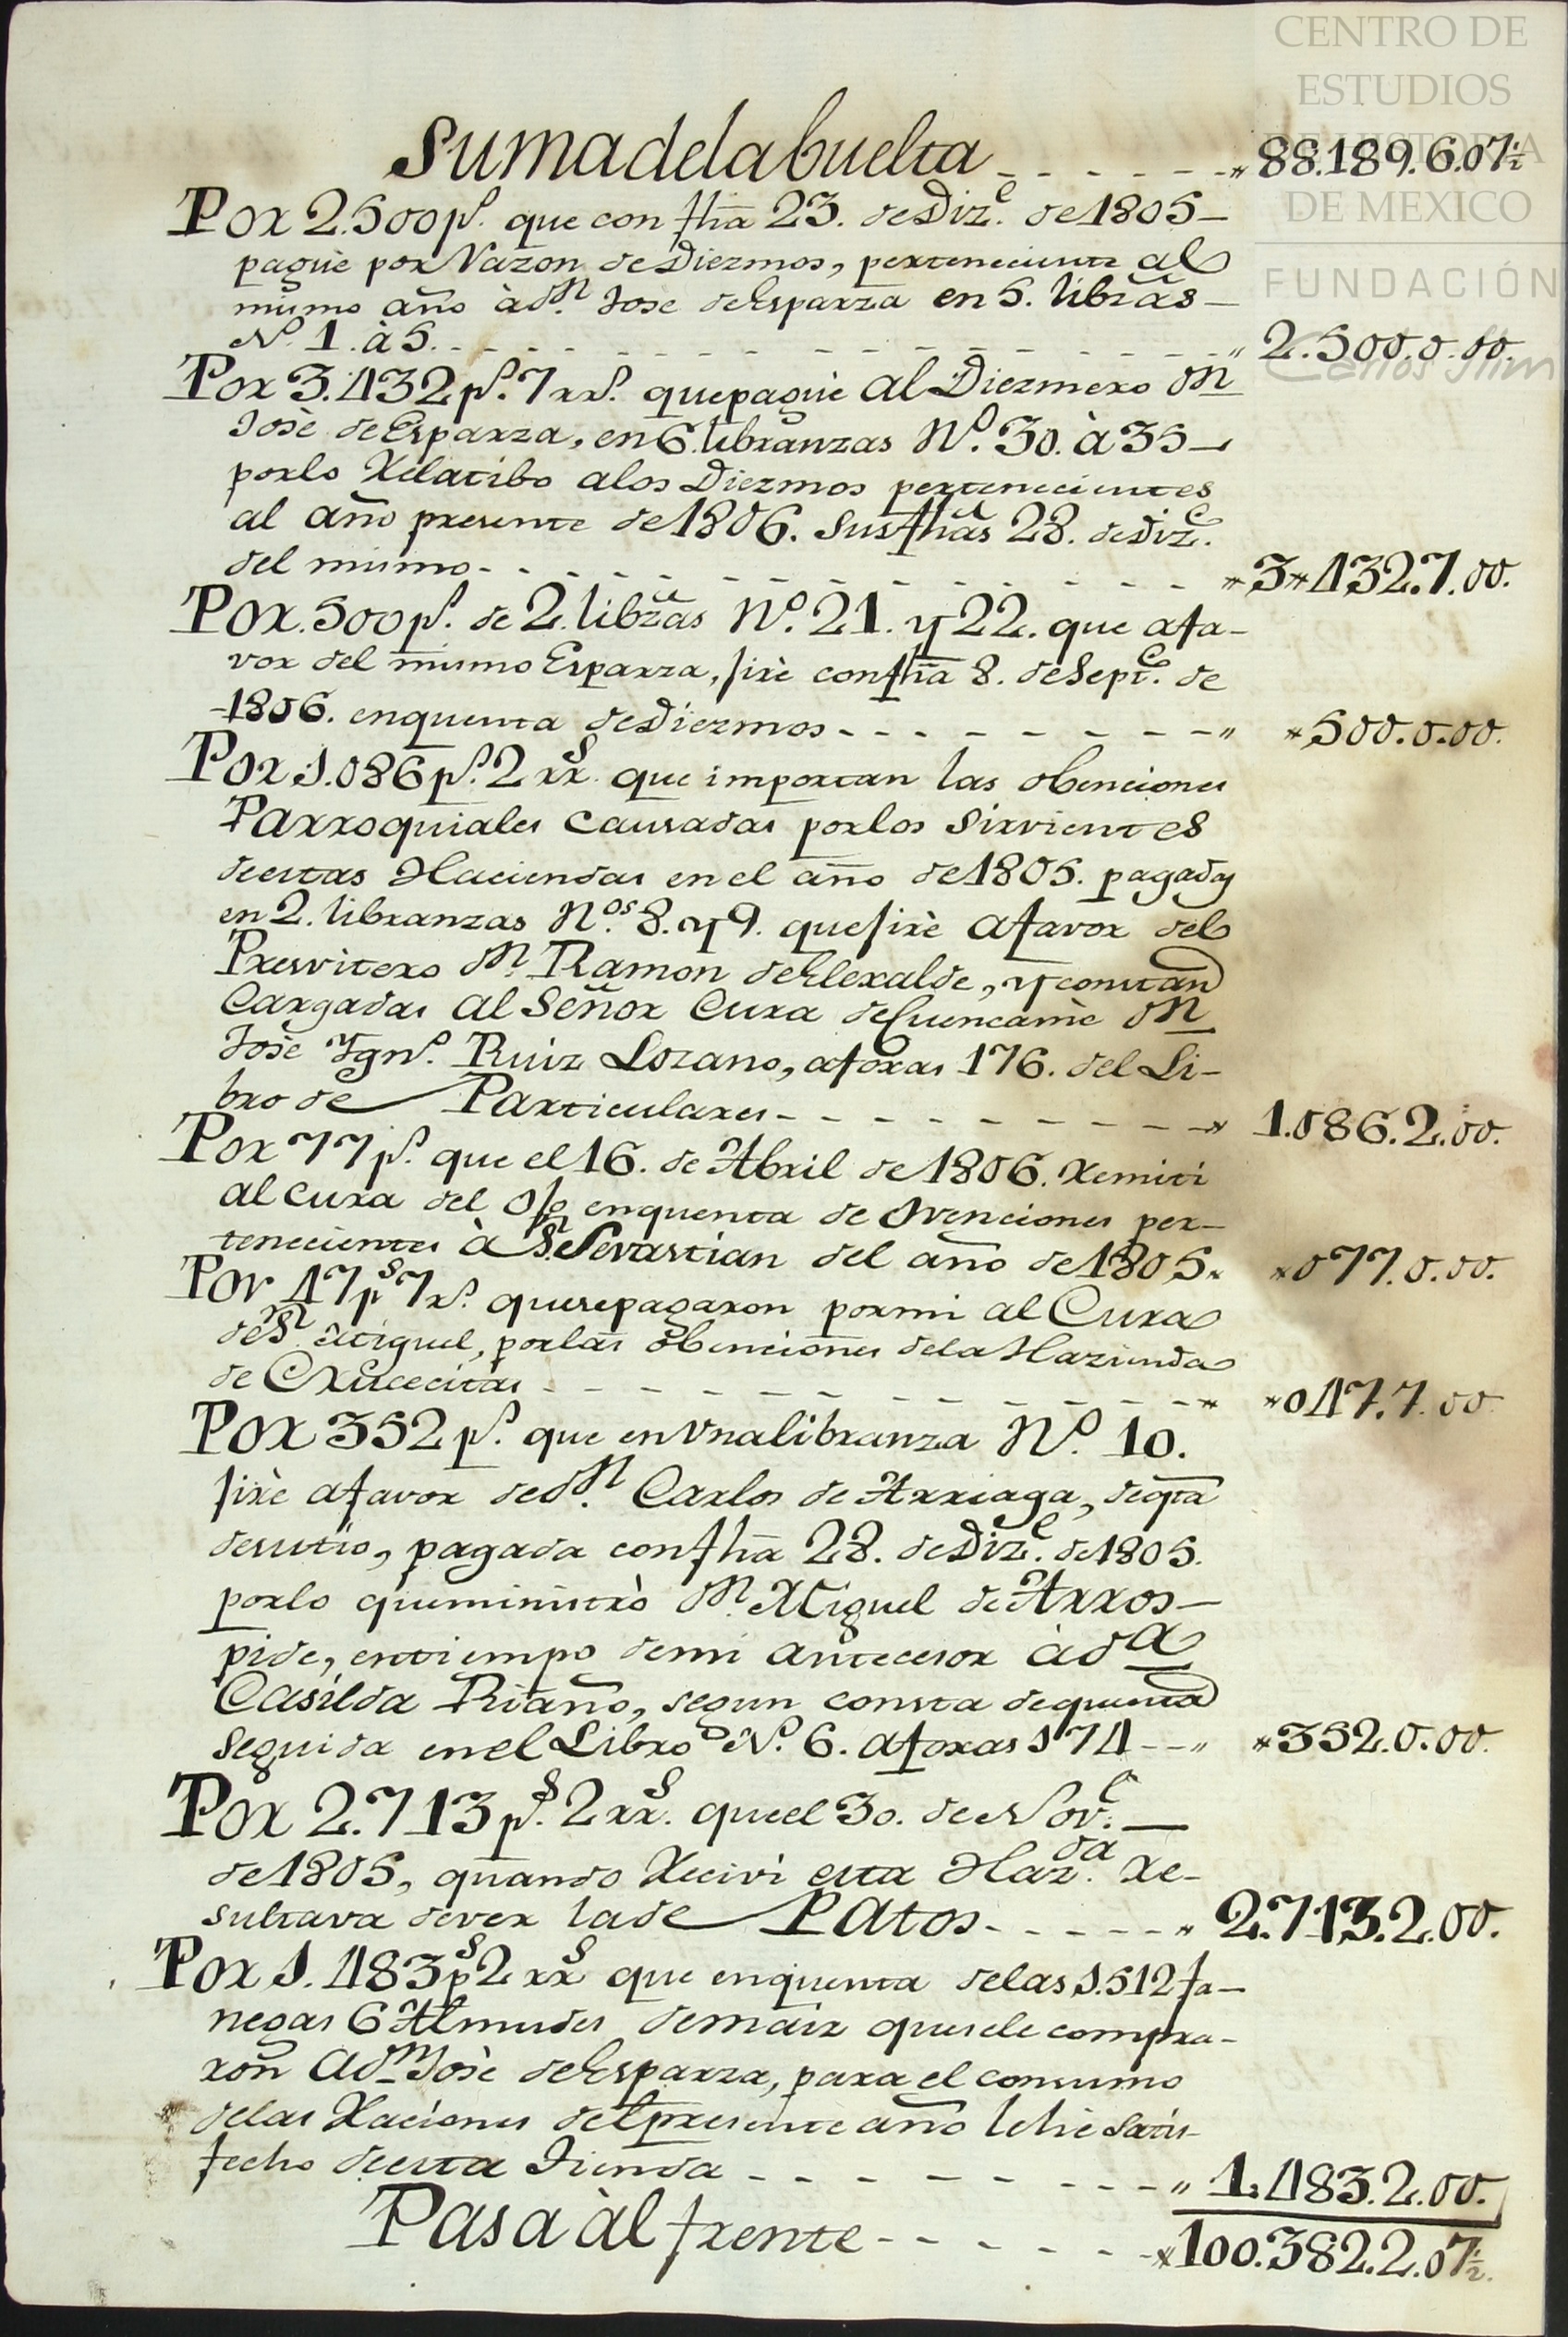 CENTRO DE
ESTUDIOS
DE HISTORIA
DE MEXICO
FUNDACIÓN
Carlos Slim
Suma de la buelta - - - - - - " 88.189.6.07½
Por 2.500 p.s que con fha 23. de Diz.e de 1805 -
paguè por razon de Diezmos, perteneciente al
mismo año à d.n Jose de Esparza en 5. libzās -
N.o 1. à 5. - - - - - - - - - - " 2.500.0.00.
Por 3.432 p.s 7 rr.s que paguè al Diezmero Dn
Josè de Esparza, en 6. libranzas N.o 30. à 35 -
por lo Relatibo a los Diezmos pertenecientes
al año presente de 1806. sus fhās 28. de Diz.e
del mismo - - - - - - - - - - " 3"432.7.00.
Por 500 p.s de 2. libzās N.o 21. y 22. que a fa-
vor del mismo Esparza, jirè con fha 8. de Sept.e de
1806. en quenta de Diezmos - - - - - - - - " "500.0.00.
Por 1.086 p.s 2 rr.s que importan las obenciones
Parroquiales causadas por los Sirvientes
de estas Haciendas en el año de 1805. pagadas
en 2. libranzas N.os 8. y 9. que jirè a favor del
Presvitero Dn. Ramon de Elexalde, y constan
Cargadas al Señor Cura de Cuencamè Dn
Josè Ygn.o Ruiz Lozano, a foxas 176. del Li-
bro de Particulares - - - - - - - - - " 1.086.2.00.
Por 77 p.s que el 16. de Abril de 1806. remiti
al cura del o/o en quenta de ovenciones per-
tenecientes à S.n Sevastian del año de 1805 " "077.0.00.
Por 47 p.s 7 r.s que se pagaron por mi al Cura
de S.n Miguel, por las obenciones de la Hazienda
de Crucecitas - - - - - - - - - - " "047.7.00
Por 352 p.s que en vna libranza N.o 10.
jirè a favor de d.n Carlos de Arriaga, de qta
de su tio, pagada con fha 28. de Diz.e de 1805.
por lo que ministrò Dn. Miguel de Arros-
pide, en tiempo de mi antecesor à da
Casilda Riaño, segun consta de quenta
seguida en el Libro N.o 6. a foxas 174 - - " "352.0.00.
Por 2.713 p.s 2 rr.s que el 30. de Nov.e
de 1805, quando Recivi esta Haz.da re-
sultava dever la de Patos - - - - - " 2.713.2.00.
Por 1.483 p.s 2 rr.s que en quenta de las 1.512 fa-
negas 6 Almudes de maiz que se le compra-
ron a Dn Josè de Esparza, para el consumo
de las Raciones del presente año le he satis-
fecho de esta Tienda - - - - - - - - " 1.483.2.00.
Pasa àl frente - - - - - - " 100.382.2.07½.